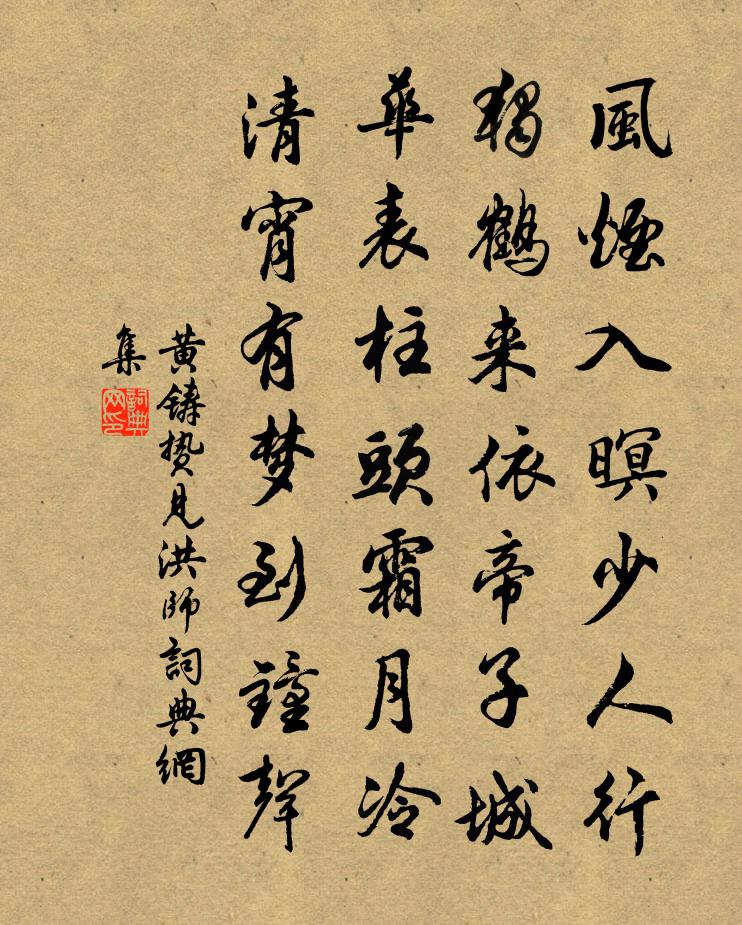 風煙入暝少人行
獨鶴来依帝子城
華表柱頭霜月冷
清宵有梦到鐘聲
黃鑄摯見洪師詞典網
集
詞典
网印